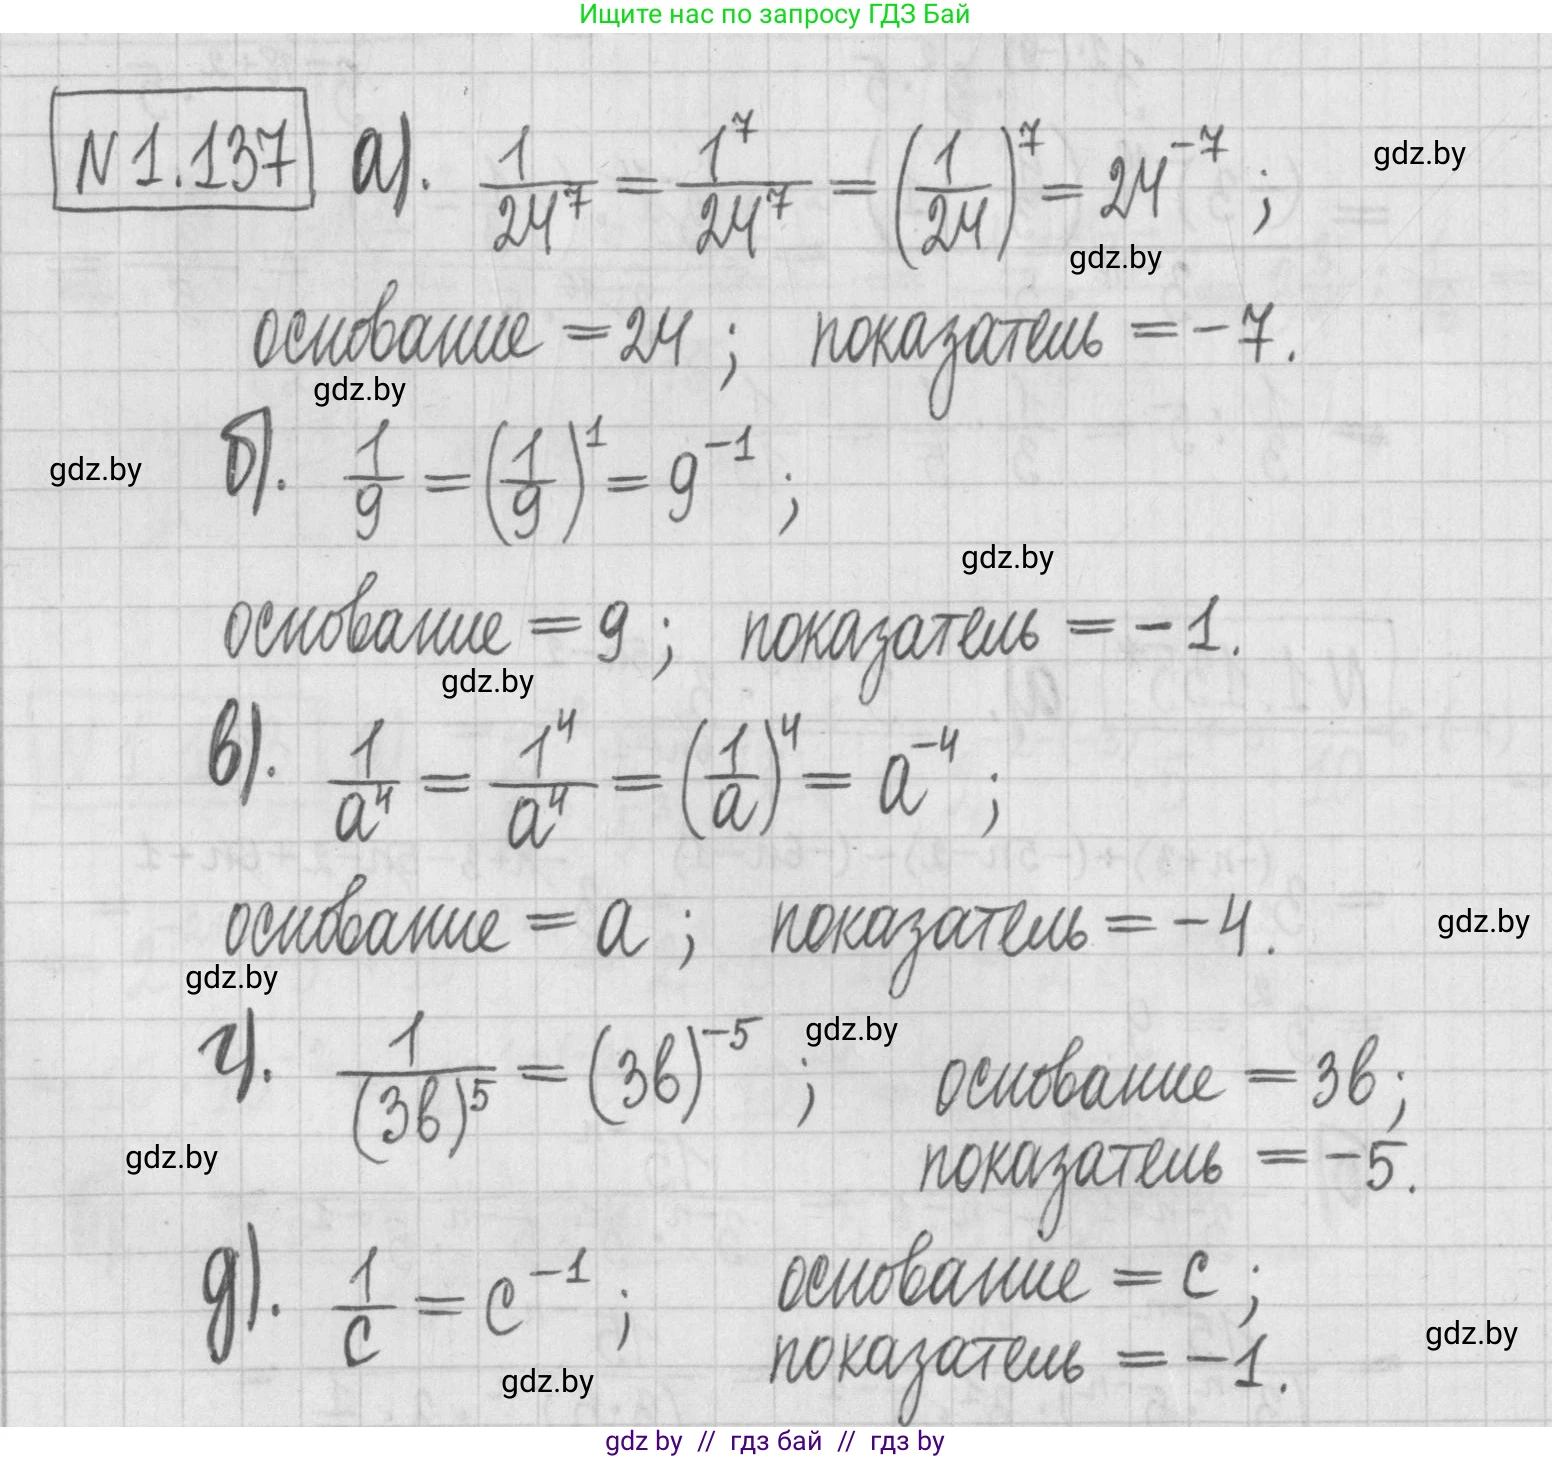 Ищите нас по запросу ГДЗ Бай
N 1.137 а). 1/24^7 = 1^7/24^7 = (1/24)^7 = 24^-7 ;
gdz.by
gdz.by
основание = 24 ; показатель = -7.
gdz.by
б). 1/9 = (1/9)^1 = 9^-1 ;
gdz.by
gdz.by
основание = 9 ; показатель = -1.
gdz.by
в). 1/a^4 = 1^4/a^4 = (1/a)^4 = a^-4 ;
основание = a ; показатель = -4.
gdz.by
gdz.by
г). 1/(3b)^5 = (3b)^-5 ; основание = 3b ;
gdz.by
показатель = -5.
gdz.by
д). 1/c = c^-1 ; основание = c ;
показатель = -1.
gdz.by
gdz.by
gdz by // гдз бай // гдз by